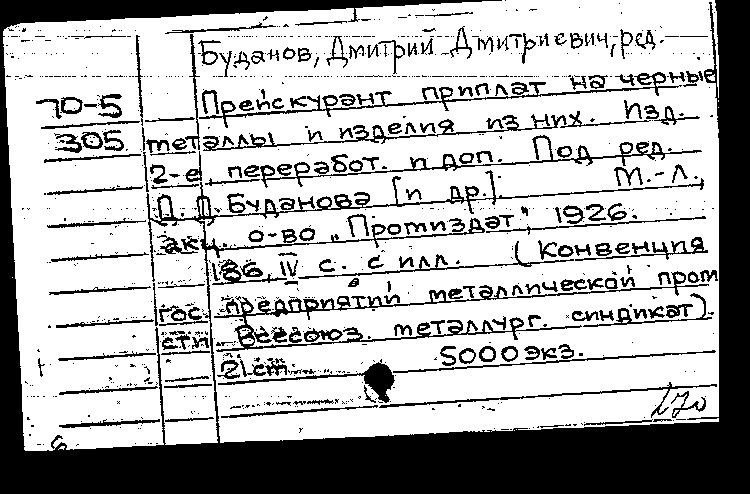 Буданов, Дмитрий Дмитриевич, ред.
70-5 Прейскурант приплат на черные
305 металлы и изделия из них. Изд.
2-е, переработ. и доп. Под ред.
Д. Д. Буданова [и др.]. М.-Л.,
акц. о-во „Промиздат", 1926.
186, IV с. с илл. (Конвенция
гос. предприятий металлической пром
сти Всесоюз. металлург. синдикат).
21 cm. 5000 экз.
170